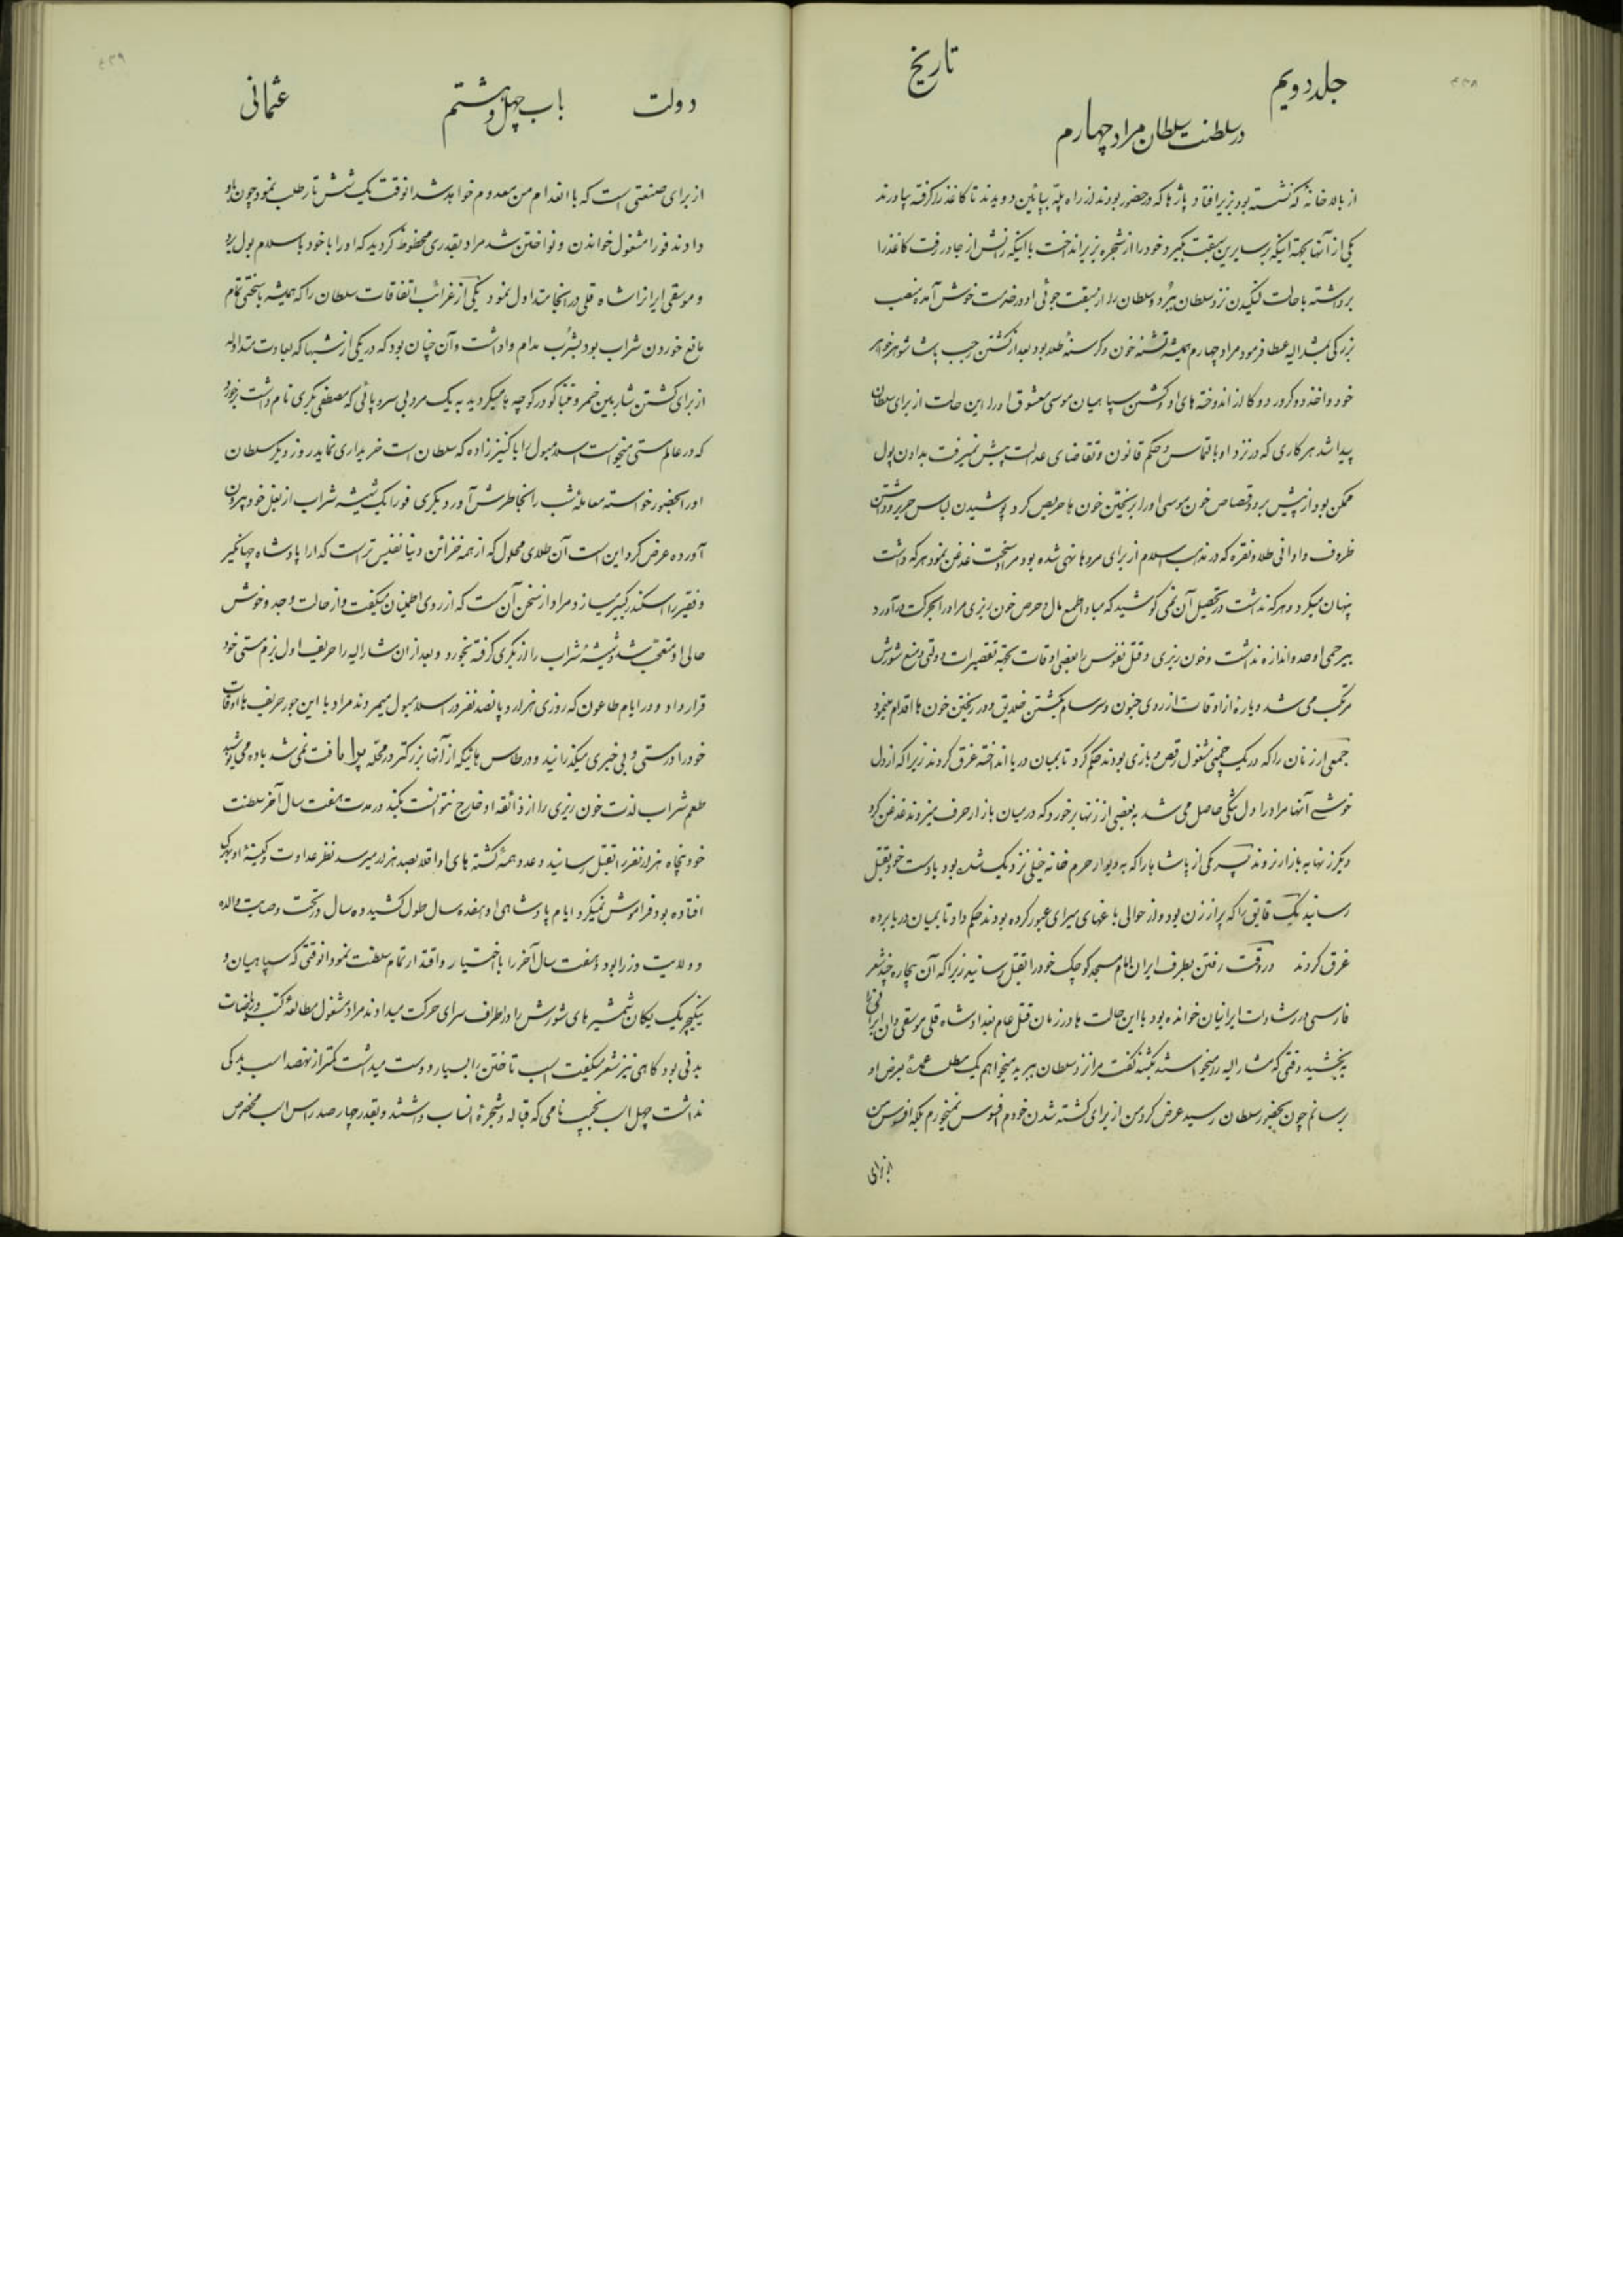 ۴۳۸
جلد دویم
تاریخ
در سلطنت سلطان مراد چهارم
از بالاخانهٔ که نشسته بود بزیر افتاد پاژها که در حضور بودند از راه پله بپائین دویدند تا کاغذ را گرفته بیاورند
یکی از آنها بجهة اینکه بر سایرین سبقت بگیرد خود را از پنجره بزیر انداخت با اینکه رانش از جا در رفت کاغذ را
برداشته با حالت لنگیدن نزد سلطان ببرد و سلطان را از سبقت جوئی او در خدمت خوش آمده منصب
بزرگی بمشار الیه عطا فرمود مراد چهارم همیشه تشنه خون و گرسنهٔ طلا بود بعد از کشتن رجب پاشا شوهر خواهر
خود و اخذ دو کرور دوکا از اندوخته های او و کشتن سپاهیان موسی معشوق او را این حالت از برای سلطان
پیدا شد هر کاری که در نزد او با التماس و حکم قانون و تقاضای عدالت پیش نمیرفت بدادن پول
ممکن بود از پیش برود قصاص خون موسی او را بر ریختن خون ها حریص کرد پوشیدن لباس حریر و داشتن
ظروف و اوانی طلا و نقره که در مذهب اسلام از برای مردها نهی شده بود مراد سخت غدغن نمود هر که داشت
پنهان میکرد و هر که نداشت در تحصیل آن نمی کوشید که مبادا طمع مال و حرص خون ریزی مراد را بحرکت در آورد
بیرحمی او حد و اندازه نداشت و خون ریزی و قتل نفوس را بعضی اوقات بجهة تقصیرات دولتی و منع شورش
مرتکب می شد و پارهٔ از اوقات از روی جنون و سرسام بکشتن خلایق و در ریختن خون ها اقدام مینمود
جمعی از زنان را که در یک چمنی مشغول رقص و بازی بودند حکم کرد تا بمیان دریا انداخته غرق کردند زیرا که از دل
خوشی آنها مراد را دل تنگی حاصل می شد به بعضی از زنها بر خورد که در میان بازار حرف میزدند غدغن کرد
دیگر زنها به بازار نروند پسر یکی از پاشاها را که به دیوار حرم خانه خیلی نزدیک شده بود با دست خود بقتل
رسانید یک قایق را که پر از زن بود و از حوالی باغهای سرای عبور کرده بودند حکم داد تا بمیان دریا برده
غرق کردند در وقت رفتن بطرف ایران امام مسجد کوچک خود را بقتل رسانید زیرا که آن بیچاره چند شعر
فارسی در رشادت ایرانیان خوانده بود با این حالت ها در زمان قتل عام بغداد شاه قلی موسیقی دان ایرانی را
بخشید وقتی که مشار الیه را میخواستند بکشند گفت مرا نزد سلطان ببرید میخواهم یک مطلب عمدهٔ بعرض او
برسانم چون بحضور سلطان رسید عرض کرد من از برای کشته شدن خودم افسوس نمیخورم بلکه افسوس من
از برای
۴۳۹
دولت
باب چهل و هشتم
عثمانی
از برای صنعتی است که با انعدام من معدوم خواهد شد انوقت یک شش تار طلب نمود چون باو
دادند فورا مشغول خواندن و نواختن شد مراد بقدری محظوظ گردید که او را با خود باسلامبول برد
و موسیقی ایران را شاه قلی در انجا متداول نمود یکی از غرائب اتفاقات سلطان را که همیشه بسختی تمام
مانع خوردن شراب بود بشرب مدام واداشت و آن چنان بود که در یکی از شبها که بعادت متداوله
از برای کشتن شاربین خمر و تنباکو در کوچه ها میگردید به یک مرد بی سر و پائی که مصطفی بکری نام داشت برخورد
که در عالم مستی میخواست اسلامبول را با کنیززاده که سلطان است خریداری نماید روز دیگر سلطان
او را بحضور خواسته معاملهٔ شب را بخاطرش آورد بکری فورا یک شیشه شراب از بغل خود بیرون
آورده عرض کرد این است آن طلای محلول که از همه خزائن دنیا نفیس تر است گدا را پادشاه جهانگیر
و فقیر را اسکندر کبیر میسازد مراد از سخن آن مست که از روی اطمینان میگفت و از حالت وجد و خوش
حالی او متعجب شد و شیشهٔ شراب را از بکری گرفته بخورد و بعد از ان مشار الیه را حریف اول بزم مستی خود
قرار داد و در ایام طاعون که روزی هزار و پانصد نفر در اسلامبول میمردند مراد با این جور حریف ها اوقات
خود را در مستی و بی خبری میگذرانید و در طاس هائیکه از آنها بزرگتر در محله پرا یافت نمی شد باده می نوشید
طعم شراب لذت خون ریزی را از ذائقه او خارج نتوانست بکند در مدت هفت سال آخر سلطنت
خود پنجاه هزار نفر را بقتل رسانید و عدد همهٔ کشته های او اقلا بصد هزار میرسد نظر عداوت و کینهٔ او بهر کس
افتاده بود فراموش نمیکرد ایام پادشاهی او هفده سال طول کشید ده سال در تحت وصایت والده
و ولایت وزرا بود و هفت سال آخر را با اختیار و اقتدار تمام سلطنت نمود انوقتی که سپاهیان و
ینگیچریک یکان شمشیر های شورش را در اطراف سرای حرکت میدادند مراد مشغول مطالعهٔ کتب و ریاضات
بدنی بود گاهی نیز شعر میگفت اسب تاختن را بسیار دوست میداشت کمتر از نهصد اسب یدکی
نداشت چهل اسب نجیب نامی که قباله و شجرهٔ انساب داشتند و بقدر چهار صد راس اسب مخصوص